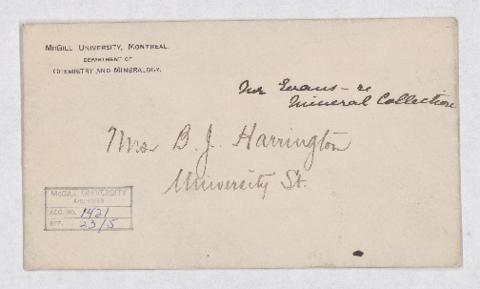 McGill University, Montreal.
DEPARTMENT OF
CHEMISTRY AND MINERALOGY.
Evans - re
Mineral Collection
Mrs B. J. Harrington
University St.
McGILL UNIVERSITY
ARCHIVES
ACC. NO. 1421
REF. 23/5